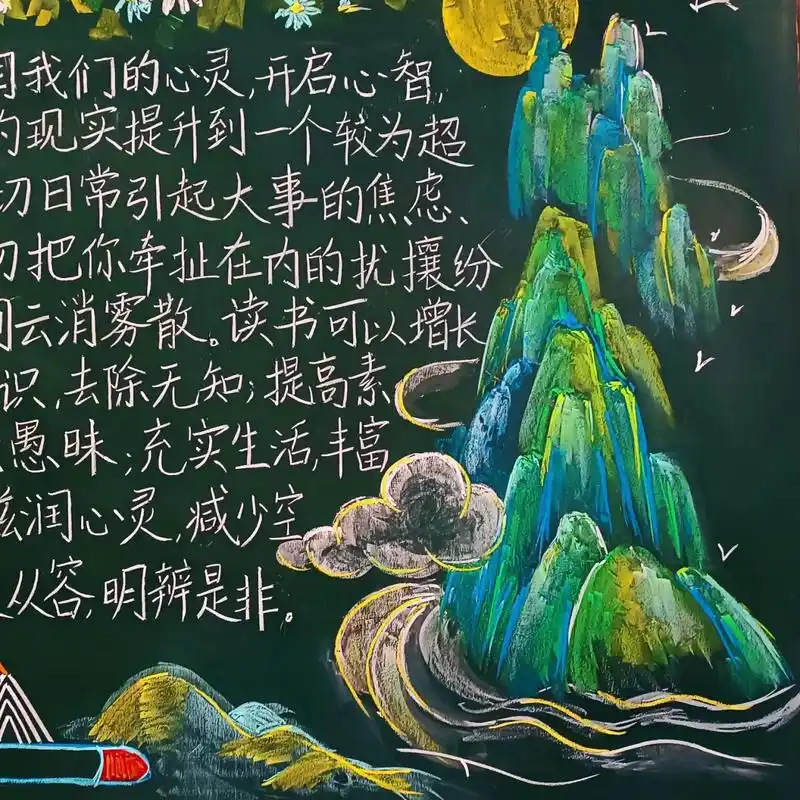 我们的心灵,开启心智,
的现实提升到一个较为超
切日常引起大事的焦虑、
切把你牵扯在内的扰攘纷
间云消雾散。读书可以增长
识,去除无知;提高素
愚昧;充实生活,丰富
滋润心灵,减少空
从容,明辨是非。